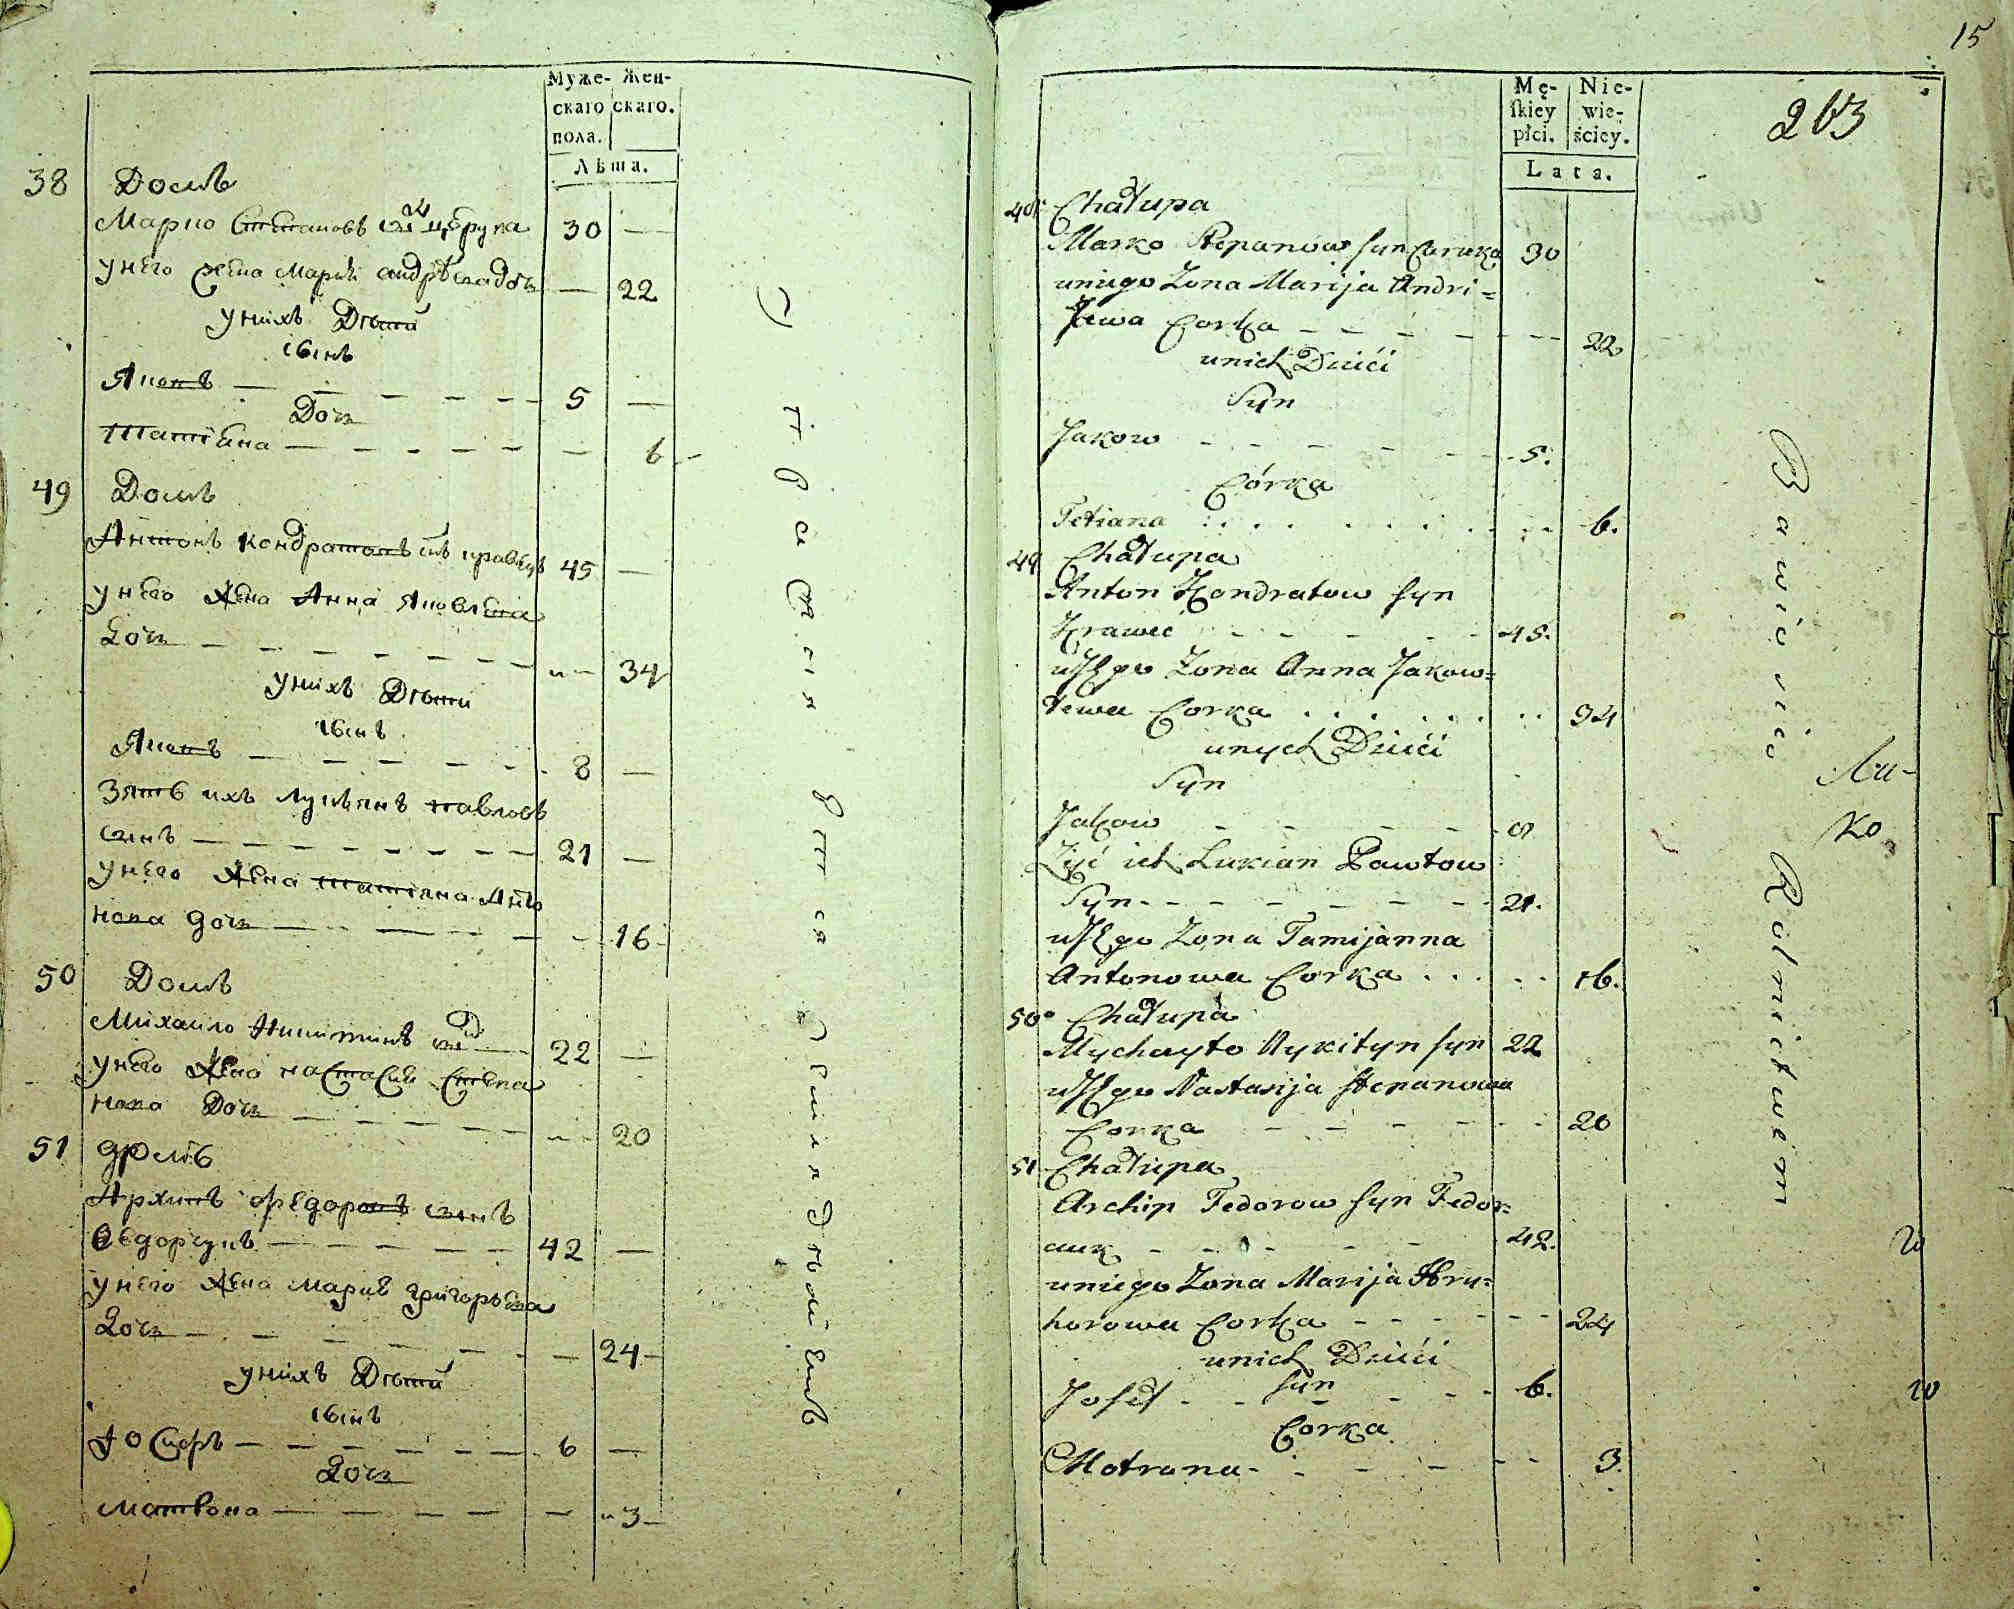 Муже- Жен-
скаго скаго.
пола.
Лѣта.
38 Домъ
Марко Степановъ сн Цѣрука 30 —
унего жена Марія андрѣева доч — 22
унихъ Дѣти
сынъ
Яковъ — 5 —
Доч
Татіана — — 6
49 Домъ
Антонъ Кондратовъ снъ кравецъ 45 —
унего жена Анна Яковлева
Доч — 34
унихъ Дѣти
сынъ
Яковъ — 8 —
Зять ихъ Лукіянъ Павловъ
синъ — 21 —
унего жена Татіяна Анто
нова доч — 16
50 Домъ
Михайло Никитинъ син 22 —
унего жена Настасія Степа
нова Доч — 20
51 Домъ
Архипъ Федоровъ синъ
Ѳедорчукъ — 42 —
унего жена Марія григорьева
Доч — 24
унихъ Дѣти
сынъ
Іосифъ — 6 —
Доч
Матрона — 3
15
Mę- Nie-
skiey wie-
płci. ściey.
Lata.
263
Chałupa
Marko Stepanow syn Caruka 30
uniego Zona Marija Andri=
Jewa Corka — 22
unich Dzieći
Syn
Jakow — 5.
Córka
Tetiana — 6.
49 Chałupa
Anton Kondratow syn
Krawec — 45.
Zona Anna Jakow=
lewa Corka — 34
unych Dzieći
Syn
Jakow — 8
Zyć ich Lukian Pawłow
Syn — 21.
Zona Tamijanna
Antonowa Corka — 16.
50 Chałupa
Mychayło Nykityn syn 22
Nastasija Stepanowa
Corka — 20
51 Chałupa
Archip Fedorow syn Fedor=
cuk — 42.
uniego Zona Marija Hry=
horowa Corka — 24
unich Dzieći
syn
Josef — 6.
Corka
Motrona — 3.
Bawić się Rolnictwem